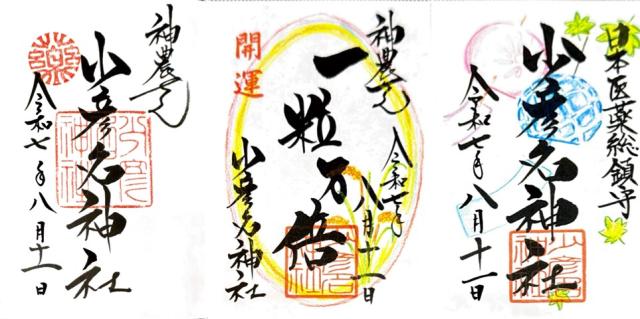 神農さん
少彦名神社
令和七年八月十一日
神農さん
一粒万倍
開運
令和七年
八月十一日
少彦名神社
日本医薬総鎮守
少彦名神社
令和七年八月十一日